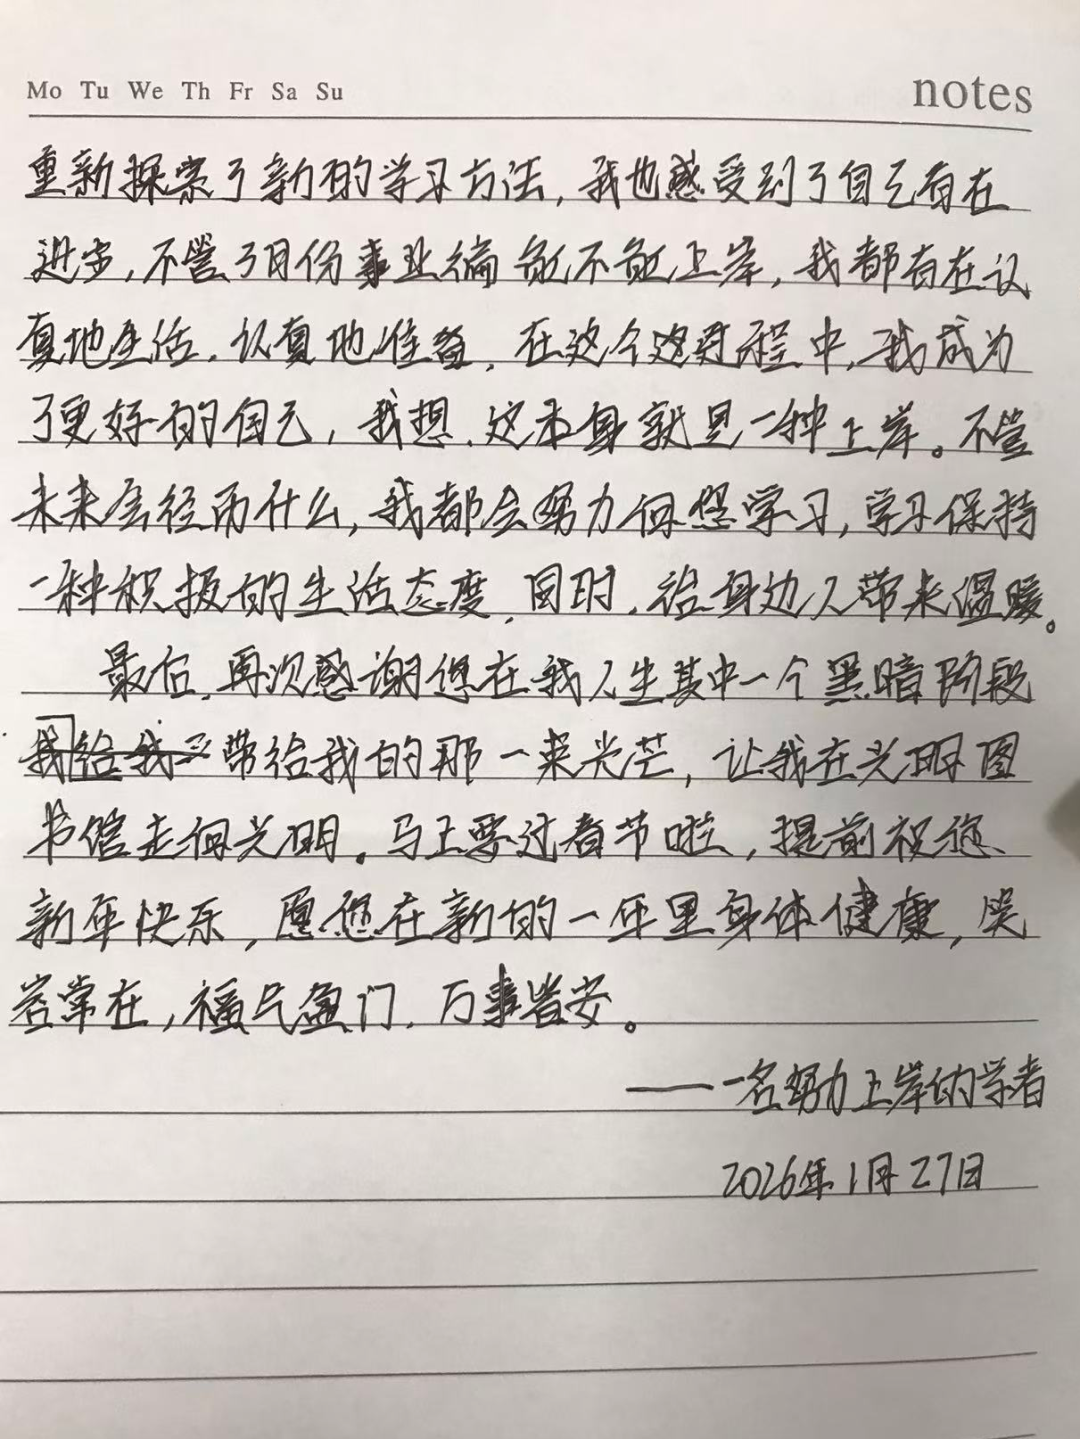 Mo Tu We Th Fr Sa Su
notes
重新探索了新的学习方法，我也感受到了自己有在
进步，不管3月份事业编能不能上岸，我都有在认
真地生活，认真地准备，在这个过程中，我成为
了更好的自己，我想，这本身就是一种上岸。不管
未来会经历什么，我都会努力向您学习，学习保持
一种积极的生活态度，同时，给身边人带来温暖。
最后，再次感谢您在我人生其中一个黑暗阶段
带给我的那一束光芒，让我在光明图
书馆走向光明。马上要过春节啦，提前祝您
新年快乐，愿您在新的一年里身体健康，笑
容常在，福气盈门，万事皆安。
——一名努力上岸的学者
2026年1月27日